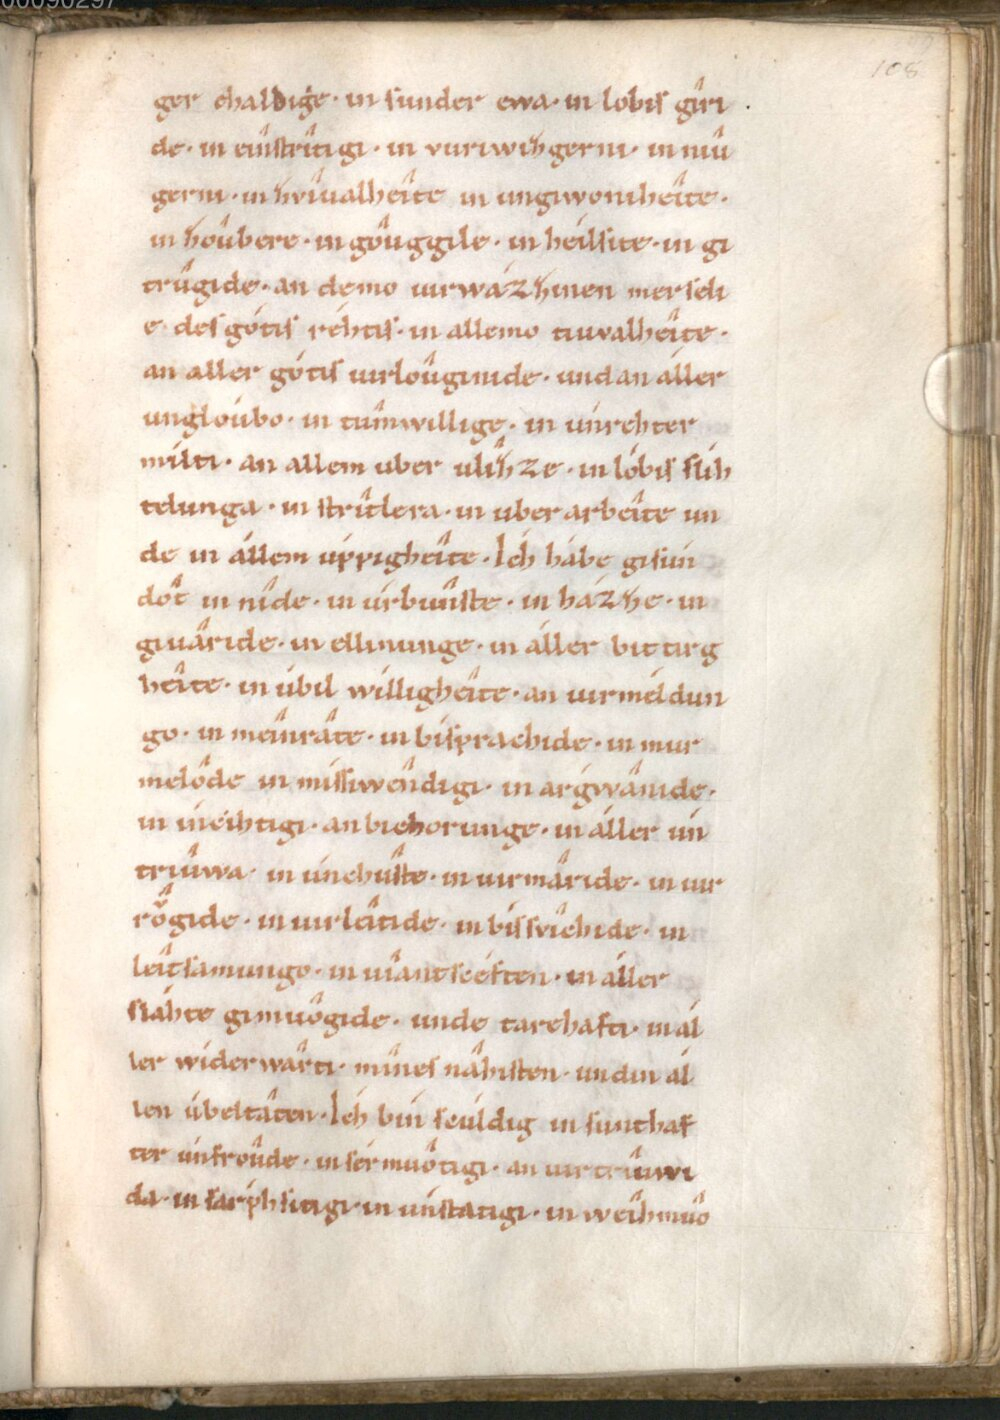 00090297
108
ger chaldige · in sunder ewa · in lobis girî
de · in einstrîtigi · in vuriwizgerni · in niû
gerni · in zvîvalheîte in ungiwoniheîte ·
in zoûbere · in goûggile · in heîlsite · in gi
trûgide · an demo virwázzinen merseli
e des gótis réhtis · in allemo tiuvalheîte ·
an aller gótis virloûginide · undan áller
ungloúbo · in tûmwillige · in únrehter
milti · an allem uber vlîzze · in lóbis slih
telunga · in strîtlera · in uber arbeîte un
de in állem úppigheîte · Ich hábe gisún
dôt in nîde · in írbiúnste · in házze · in
giváride · in ellinunge · in áller bittirg
heîte · in úbil willigheîte · an virméldun
go · in meînrâte · in bisprachide · in mur
melôde in míssiwéndigi · in argwânide ·
in ineihtigi · an biehorunge · in áller ún
triûwa · in únchûste · in virmâride · in vir
rôgide · in virleîtide · in bissvîchide · in
leîtsamungo · in víantscéften · in áller
slahte gimuôgide · unde tarehafti · in ál
ler widerwârti · mînes nâhisten · undin ál
len úbeltâten · Ich bin scúldig in sunthaf
ter únfroûde · in sérmuôtigi · an virtrûwi
da · in sarphsitigi · in únstatigi · in weîhmuô